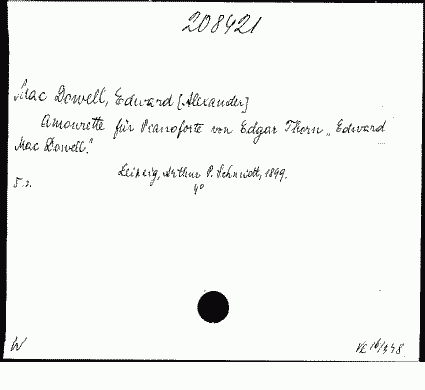 208421
Mac Dowell, Edward [Alexander]
Amourette für Pianoforte von Edgar Thorn „Edward
Mac Dowell."
Leipzig, Arthur P. Schmidt, 1899.
4°
5 S.
W